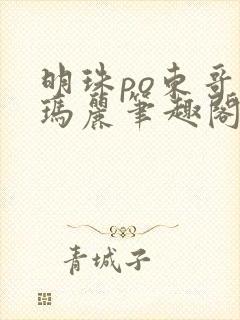 明珠po东哥
瑪麗筆趣閣
青城子